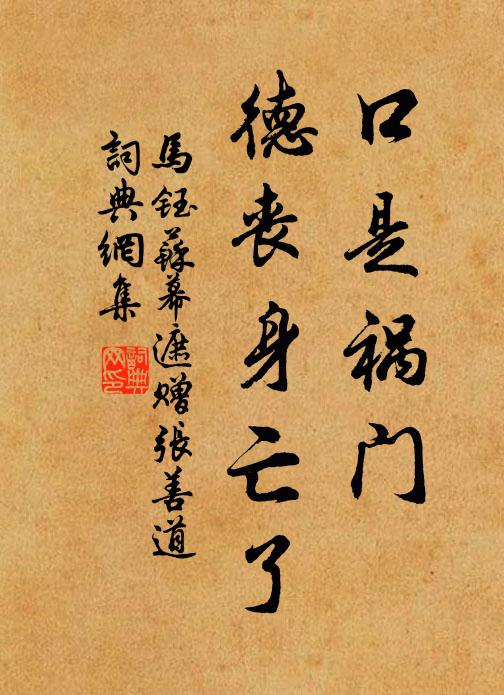 口是祸门
德丧身亡了
馬钰蘇幕遮赠張善道
詞典網集
詞典网印